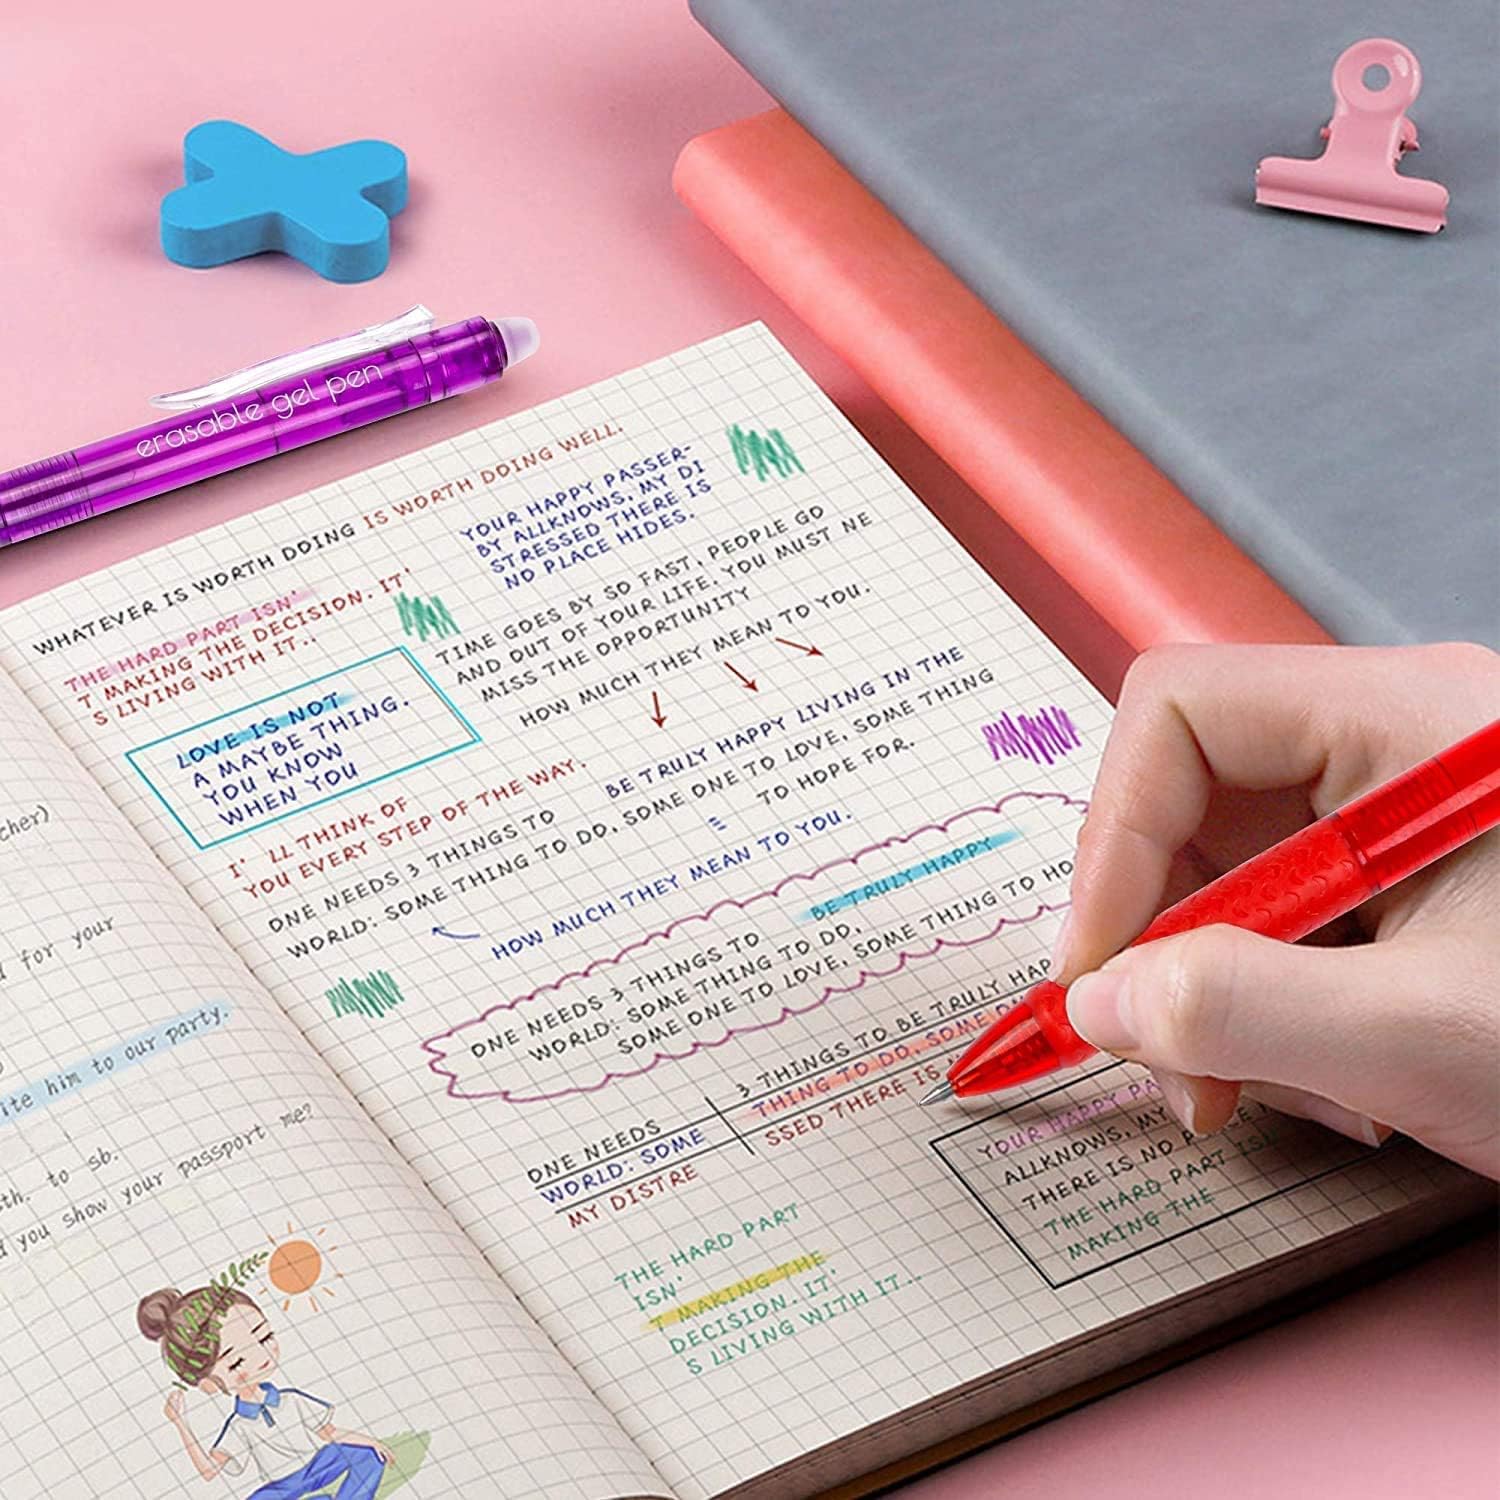 erasable gel pen
WHATEVER IS WORTH DOING IS WORTH DOING WELL.
THE HARD PART ISN'
T MAKING THE DECISION. IT'
S LIVING WITH IT..
YOUR HAPPY PASSER-
BY ALLKNOWS, MY DI
STRESSED THERE IS
NO PLACE HIDES.
TIME GOES BY SO FAST, PEOPLE GO
AND OUT OF YOUR LIFE. YOU MUST NE
MISS THE OPPORTUNITY
HOW MUCH THEY MEAN TO YOU.
LOVE IS NOT
A MAYBE THING.
YOU KNOW
WHEN YOU
I' LL THINK OF
YOU EVERY STEP OF THE WAY.
BE TRULY HAPPY LIVING IN THE
ONE NEEDS 3 THINGS TO
WORLD: SOME THING TO DO, SOME ONE TO LOVE, SOME THING
TO HOPE FOR.
=
HOW MUCH THEY MEAN TO YOU.
BE TRULY HAPPY
ONE NEEDS 3 THINGS TO
WORLD: SOME THING TO DO,
SOME ONE TO LOVE, SOME THING TO HO
3 THINGS TO BE TRULY HAP
THING TO DO, SOME ON
SSED THERE IS
ONE NEEDS
WORLD: SOME
MY DISTRE
YOUR HAPPY PA
ALLKNOWS, MY
THERE IS NO PLACE
THE HARD PART ISN'
MAKING THE
THE HARD PART
ISN'
T MAKING THE
DECISION. IT'
S LIVING WITH IT..
cher)
for your
ite him to our party.
sth. to sb.
d you show your passport me?